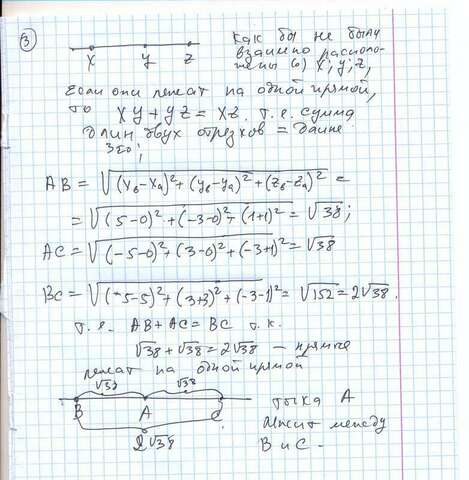 3
как бы не были
взаимно располо-
жены (·) X; y; Z,
X y Z
Если они лежат на одной прямой,
то Xy + yZ = XZ. т.е. сумма
длин двух отрезков = длине
3го;
AB = √(xв-xа)²+(yв-yа)²+(zв-zа)² =
= √(5-0)²+(-3-0)²+(1+1)² = √38;
AC = √(-5-0)²+(3-0)²+(-3+1)² = √38
BC = √(-5-5)²+(3+3)²+(-3-1)² = √152 = 2√38.
т.е. AB + AC = BC т.к.
√38 + √38 = 2√38 –
лежат на одной прямой
√38 √38
B A C
2√38
точка A
лежит между
B и C -